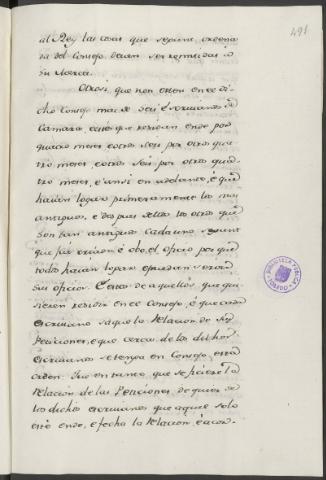 491
al Rey las cosas que segunt ordena
za del Consejo devan ser remitidas á
su Alteza.
Otrosi, que non esten en el di
cho Consejo mas de seis Escrivanos de
Camara, é estos que residan ende por
quatro meses, é otros seis por otros qua
tro meses, é otros seis por otros qua
tro meses, é ansi en adelante, é que
hayan logar primeramente los mas
antiguos, é despues dellos los otros que
son tan antiguos cada uno segunt
que fué é obo el oficio porque
todos hayan logar é puedan servir
sus oficios. É esto de aquellos que qui
sieren residir en el Consejo, é que cada
escrivano saque la relacion de sus
Peticiones, é que cerca de los dichos
escrivanos se tenga en Consejo esta
orden. Que en tanto que se ficiere la
relacion de las Peticiones de qualquier de
los dichos escrivanos que aquel solo
esté ende, é fecha la relacion, é acor-
BIBLIOTECA PUBLICA
TOLEDO